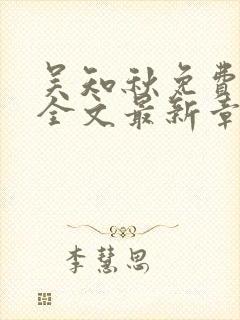 吴知秋免费
全文最新章
李慧思